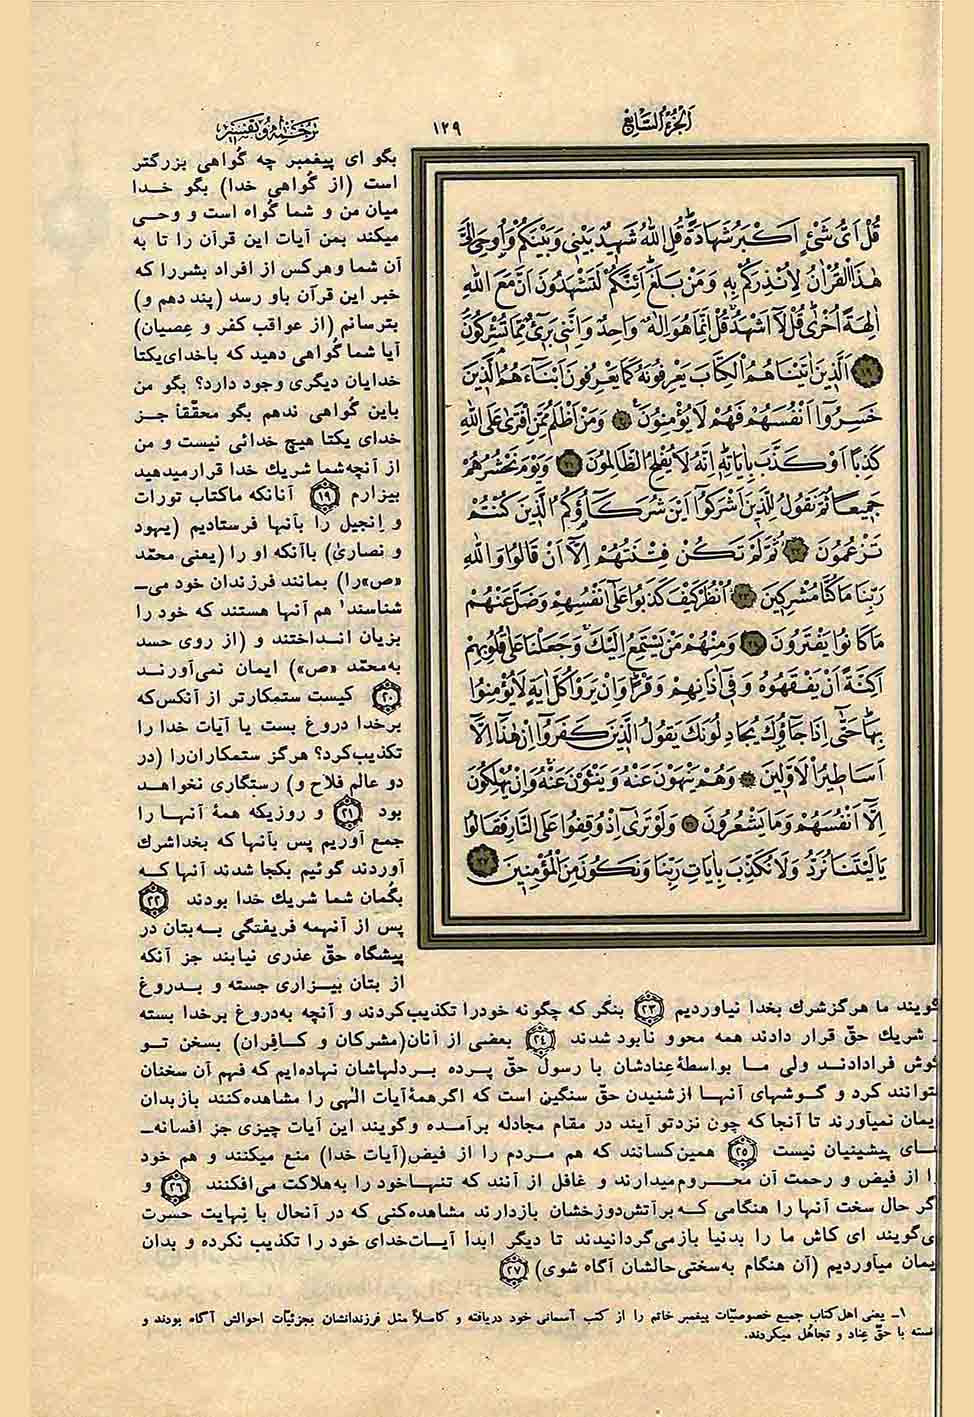 الجزء السابع
۱۲۹
ترجمه و تفسیر
قُلْ اَیُّ شَیْءٍ اَکْبَرُ شَهَادَةً قُلِ اللهُ شَهِیدٌ بَیْنِی وَبَیْنَکُمْ وَاُوحِیَ اِلَیَّ
هٰذَا الْقُرْاٰنُ لِاُنْذِرَکُمْ بِهِ وَمَنْ بَلَغَ اَئِنَّکُمْ لَتَشْهَدُونَ اَنَّ مَعَ اللهِ
اٰلِهَةً اُخْرٰی قُلْ لَا اَشْهَدُ قُلْ اِنَّمَا هُوَ اِلٰهٌ وَاحِدٌ وَاِنَّنِی بَرِیءٌ مِمَّا تُشْرِکُونَ
۱۹ اَلَّذِینَ اٰتَیْنَاهُمُ الْکِتَابَ یَعْرِفُونَهُ کَمَا یَعْرِفُونَ اَبْنَاءَهُمُ الَّذِینَ
خَسِرُوا اَنْفُسَهُمْ فَهُمْ لَا یُؤْمِنُونَ ۲۰ وَمَنْ اَظْلَمُ مِمَّنِ افْتَرٰی عَلَی اللهِ
کَذِبًا اَوْ کَذَّبَ بِاٰیَاتِهِ اِنَّهُ لَا یُفْلِحُ الظَّالِمُونَ ۲۱ وَیَوْمَ نَحْشُرُهُمْ
جَمِیعًا ثُمَّ نَقُولُ لِلَّذِینَ اَشْرَکُوا اَیْنَ شُرَکَاؤُکُمُ الَّذِینَ کُنْتُمْ
تَزْعُمُونَ ۲۲ ثُمَّ لَمْ تَکُنْ فِتْنَتُهُمْ اِلَّا اَنْ قَالُوا وَاللهِ
رَبِّنَا مَا کُنَّا مُشْرِکِینَ ۲۳ اُنْظُرْ کَیْفَ کَذَبُوا عَلٰی اَنْفُسِهِمْ وَضَلَّ عَنْهُمْ
مَا کَانُوا یَفْتَرُونَ ۲۴ وَمِنْهُمْ مَنْ یَسْتَمِعُ اِلَیْکَ وَجَعَلْنَا عَلٰی قُلُوبِهِمْ
اَکِنَّةً اَنْ یَفْقَهُوهُ وَفِی اٰذَانِهِمْ وَقْرًا وَاِنْ یَرَوْا کُلَّ اٰیَةٍ لَا یُؤْمِنُوا
بِهَا حَتّٰی اِذَا جَاؤُکَ یُجَادِلُونَکَ یَقُولُ الَّذِینَ کَفَرُوا اِنْ هٰذَا اِلَّا
اَسَاطِیرُ الْاَوَّلِینَ ۲۵ وَهُمْ یَنْهَوْنَ عَنْهُ وَیَنْئَوْنَ عَنْهُ وَاِنْ یُهْلِکُونَ
اِلَّا اَنْفُسَهُمْ وَمَا یَشْعُرُونَ ۲۶ وَلَوْ تَرٰی اِذْ وُقِفُوا عَلَی النَّارِ فَقَالُوا
یَا لَیْتَنَا نُرَدُّ وَلَا نُکَذِّبَ بِاٰیَاتِ رَبِّنَا وَنَکُونَ مِنَ الْمُؤْمِنِینَ ۲۷
بگو ای پیغمبر چه گواهی بزرگتر
است (از گواهی خدا) بگو خـدا
میان من و شما گواه است و وحـی
میکند بمن آیات این قرآن را تا به
آن شما و هرکس از افراد بشر را که
خبر این قرآن باو رسد (پند دهم و)
بترسانم (از عواقب کفر و عِصیان)
آیا شما گواهی دهید که باخدای‌یکتا
خدایان دیگری وجود دارد؟ بگو من
باین گواهی ندهم بگو محقّقاً جـز
خدای یکتا هیچ خدائی نیست و من
از آنچه‌شما شریك خدا قرارمیدهید
بیزارم ۱۹ آنانکه ماکتاب تورات
و اِنجیل را بآنها فرستادیم (یهود
و نصاریٰ) باآنکه او را (یعنی محمّد
«ص»را) بمانند فرزندان خود می‌ـ
شناسند۱ هم آنها هستند که خود را
بزیان انـداختند و (از روی حسد
به‌محمّد «ص») ایمان نمی‌آورنـد
۲۰ کیست ستمکارتر از آنکس‌که
برخدا دروغ بست یا آیات خدا را
تکذیب‌کرد؟ هرگز ستمکاران‌را (در
دو عالم فلاح و) رستگاری نخواهـد
بود ۲۱ و روزیکه همهٔ آنهـا را
جمع آوریم پس بآنها که بخداشرك
آوردند گوئیم بکجا شدند آنها کـه
بگُمان شما شریك خدا بودند ۲۲
پس از آنهمه فریفتگی بـه‌بتان در
پیشگاه حقّ عذری نیابند جز آنکه
از بتان بیـزاری جسته و بـدروغ
گویند ما هرگزشرك بخدا نیاوردیم ۲۳ بنگر که چگونه خودرا تکذیب‌کردند و آنچه به‌دروغ برخدا بسته
ـ شریك حقّ قرار دادند همه محوو نابود شدند ۲۴ بعضی از آنان(مشرکان و کـافِران) بسخن تـو
گوش فرادادنـد ولی مـا بواسطهٔ‌عِنادشان با رسول حقّ پـرده بـردلهاشان نهاده‌ایم که فهم آن سخنان
نتوانند کرد و گـوشهای آنهـا از شنیدن حقّ سنگین است که اگرهمهٔ‌آیات الهی را مشاهده‌کنند بازبدان
ایمان نمیآورند تا آنجا که چون نزدتو آیند در مقام مجادله برآمـده وگویند این آیات چیزی جز افسانه‌ـ
هـای پیشینیان نیست ۲۵ همین‌کسانند که هم مـردم را از فیض(آیات خدا) منع میکنند و هم خود
را از فیض و رحمت آن محـروم‌میدارند و غافل از آنند که تنهـاخود را به‌هلاکت می‌افکنند ۲۶ و
اگر حال سخت آنهـا را هنگامی کـه‌برآتش‌دوزخشان بازدارند مشاهده‌کنی که در آنحال با نِهایت حسرت
می‌گویند ای کاش ما را بدنیا بازمی‌گردانیدند تا دیگر ابدأ آیـات‌خدای خود را تکذیب نکرده و بدان
ایمان میآوردیم (آن هنگام به‌سختی‌حالشان آگاه شوی) ۲۷
۱ـ یعنی اهل‌کتاب جمیع خصوصیّات پیغمبر خاتم را از کتب آسمانی خود دریافته و کاملاً مثل فرزندانشان بجزئیّات احوالش آگاه بودند و
دانسته با حقّ عِناد و تجاهُل میکردند.